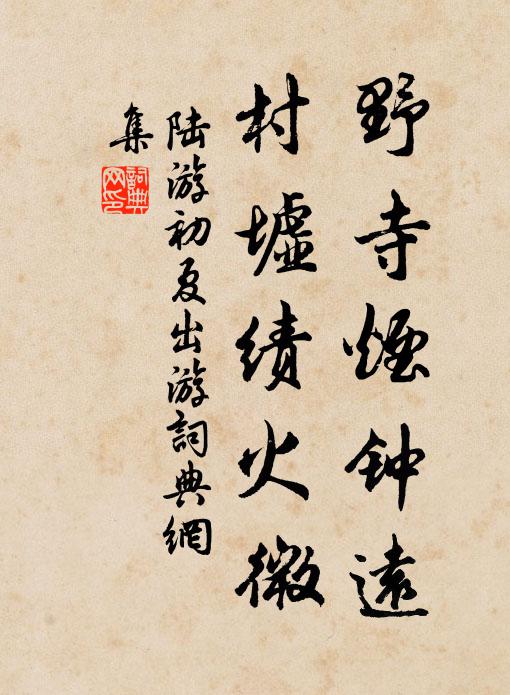 野寺煙钟遠
村墟績火微
陆游初夏出游詞典網
集
詞典网印